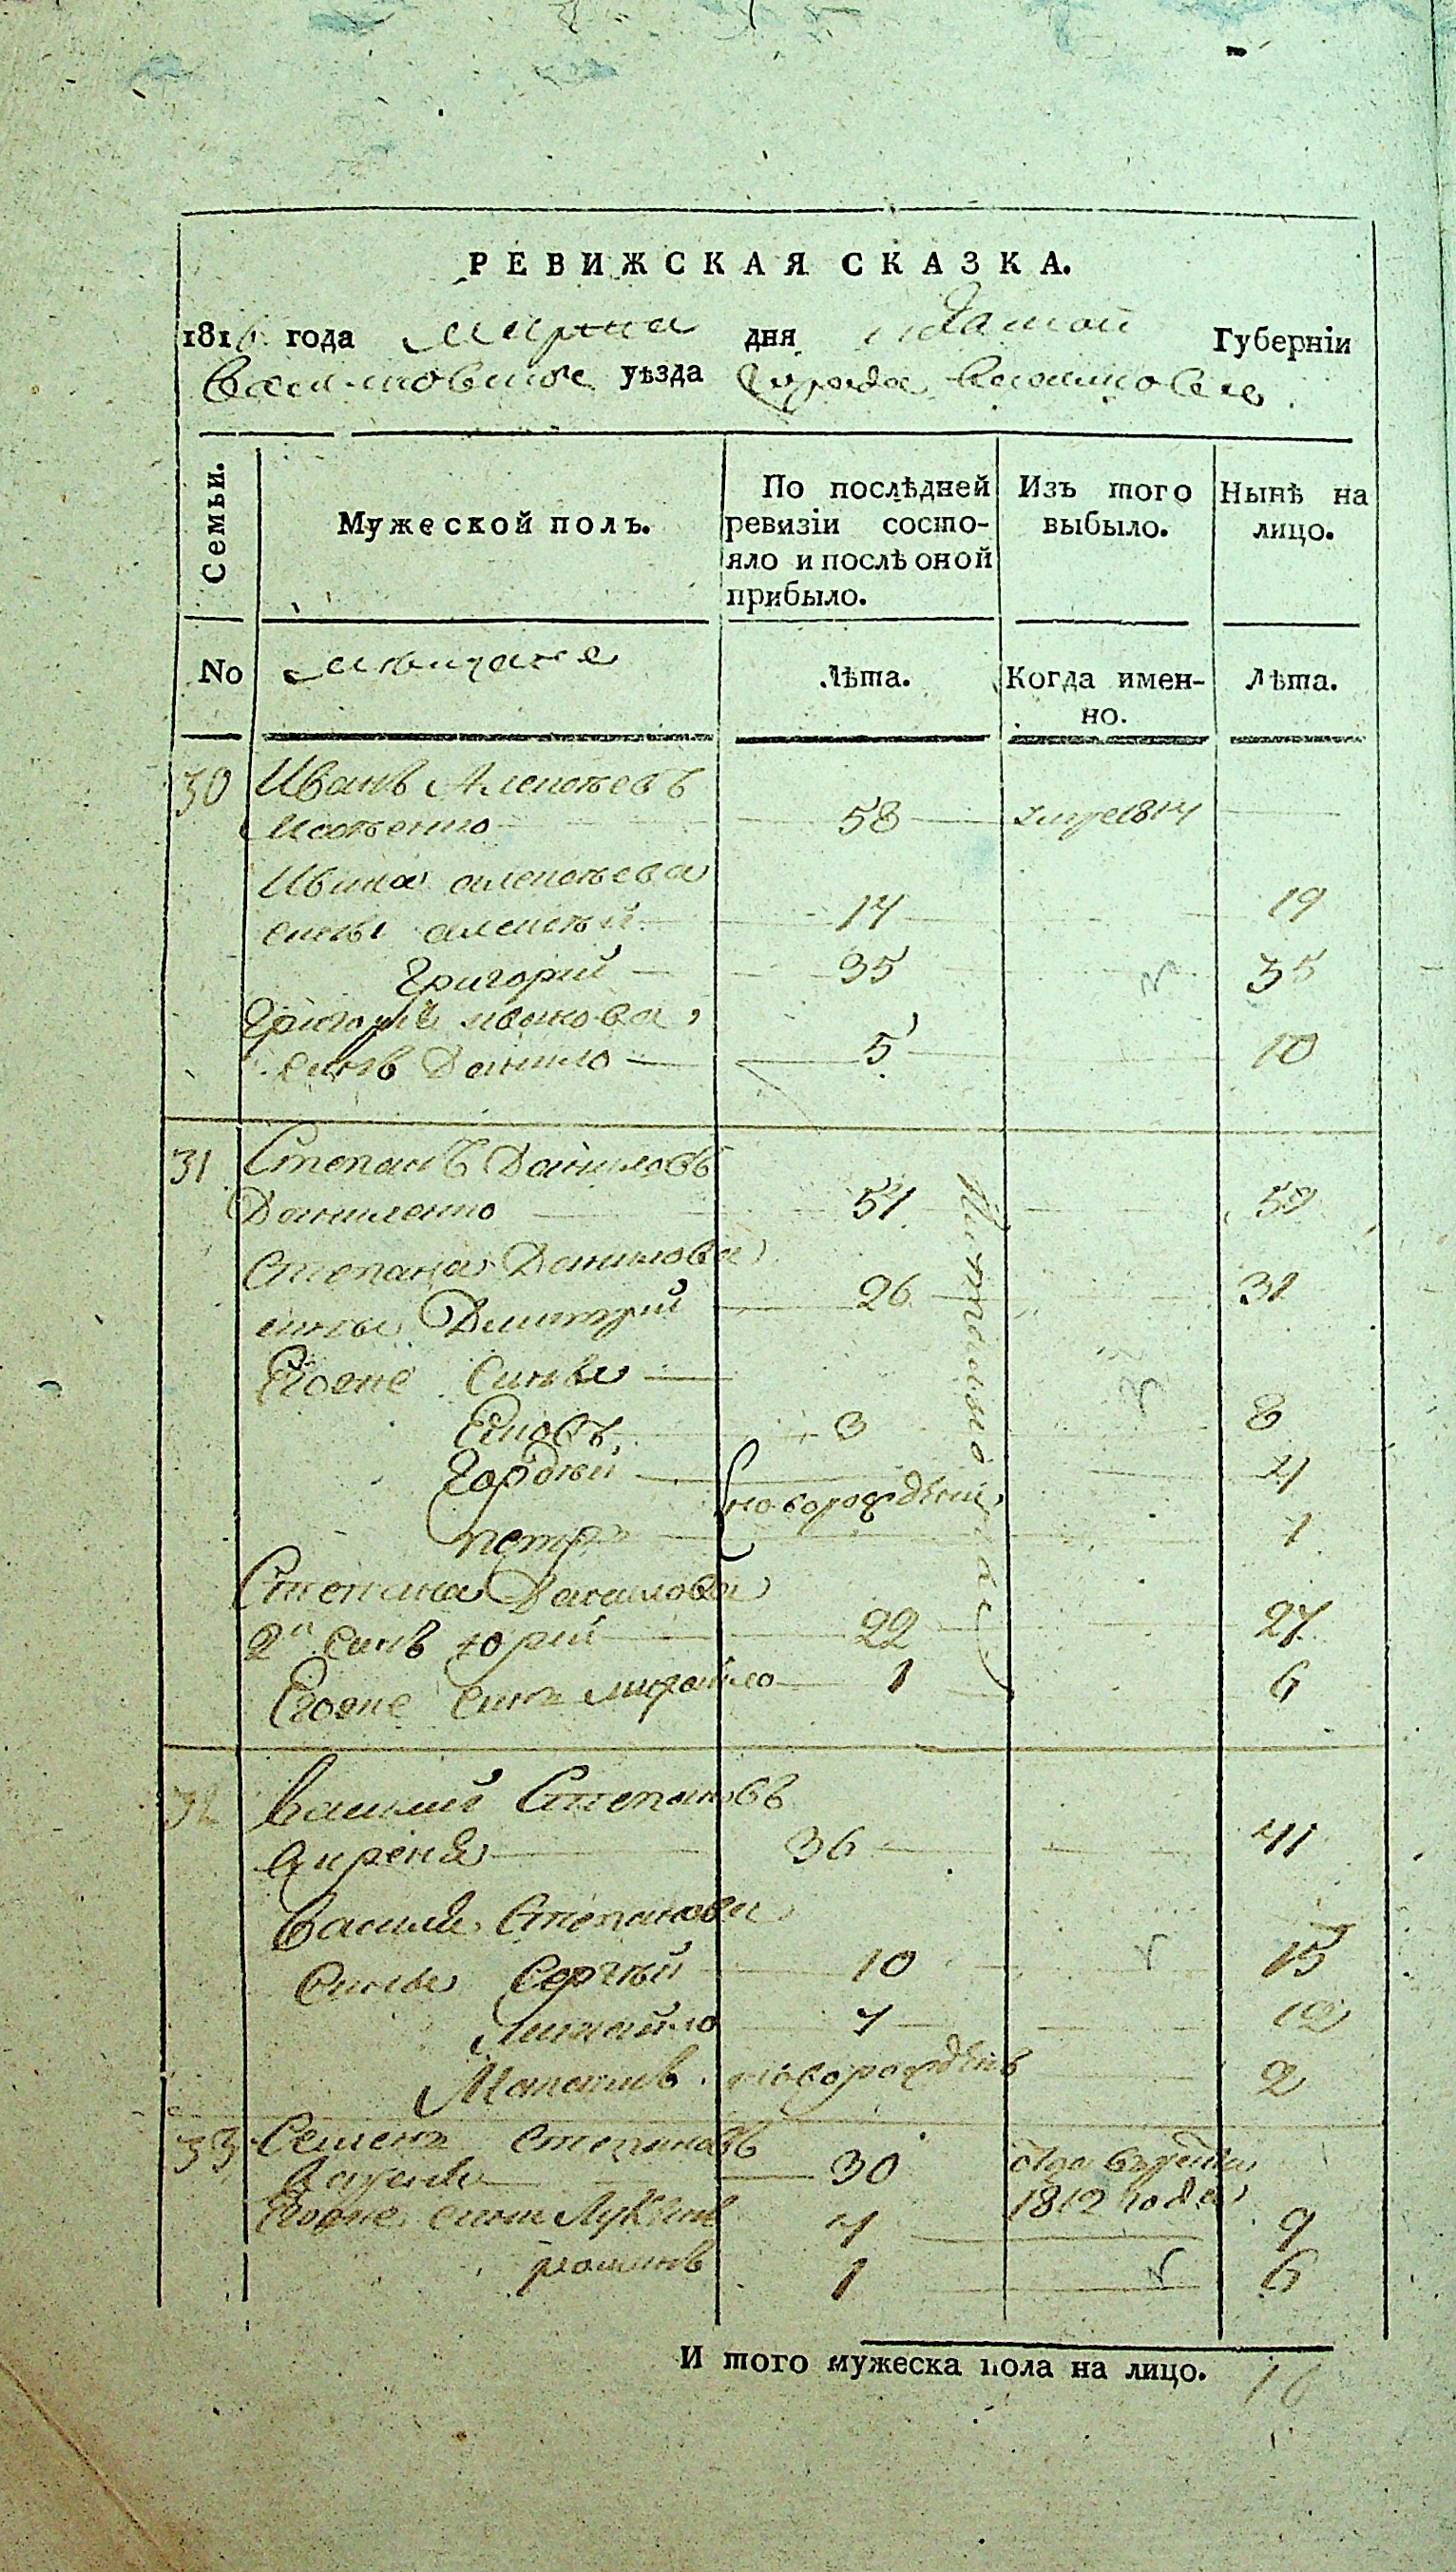 РЕВИЖСКАЯ СКАЗКА.
1816 года Марта дня Губерніи
уѣзда города
Семьи.
Мужеской полъ.
По послѣдней ревизіи состо-
яло и послѣ оной
прибыло.
Изъ того
выбыло.
Нынѣ на
лицо.
No
мѣщане
Лѣта.
Когда имен-
но.
Лѣта.
30 Иванъ Алексѣевъ
Исаенко 58 умре 1814
Ивана Алексѣева
сыны Алексѣй 14 19
Григорий 35 35
Григорія Иванова
сынъ Данило 5 10
31 Степанъ Даниловъ
Даниленко 54 59
Степана Данилова
сыны Дмитрий 26 31
Егоже сыны
Яковъ 3 8
Гордѣй 4
новорождены
Петръ 1
Степана Данилова
2й сынъ Юрій 22 27
Егоже сынъ Михайло 1 6
32 Василий Степановъ
36 41
Василия Степанова
сыны Сергѣй 10 15
Михайло 7 12
новорожденъ 2
33 Семенъ Степановъ
30
1812 года
Егоже сыны Лукянъ 4 9
1 6
И того мужеска пола на лицо. 16